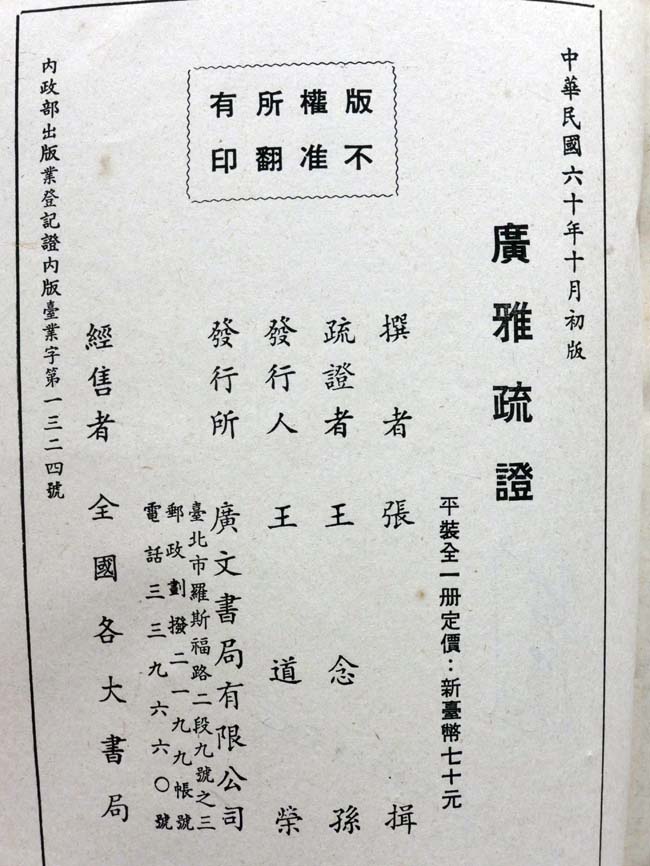 中華民國六十年十月初版
廣雅疏證
平裝全一册定價：新臺幣七十元
撰者 張揖
疏證者 王念孫
發行人 王道榮
發行所 廣文書局有限公司
臺北市羅斯福路二段九號之三
郵政劃撥二一九九帳號
電話三三九六六〇號
經售者 全國各大書局
版權所有
不准翻印
內政部出版業登記證內版臺業字第一三二四號